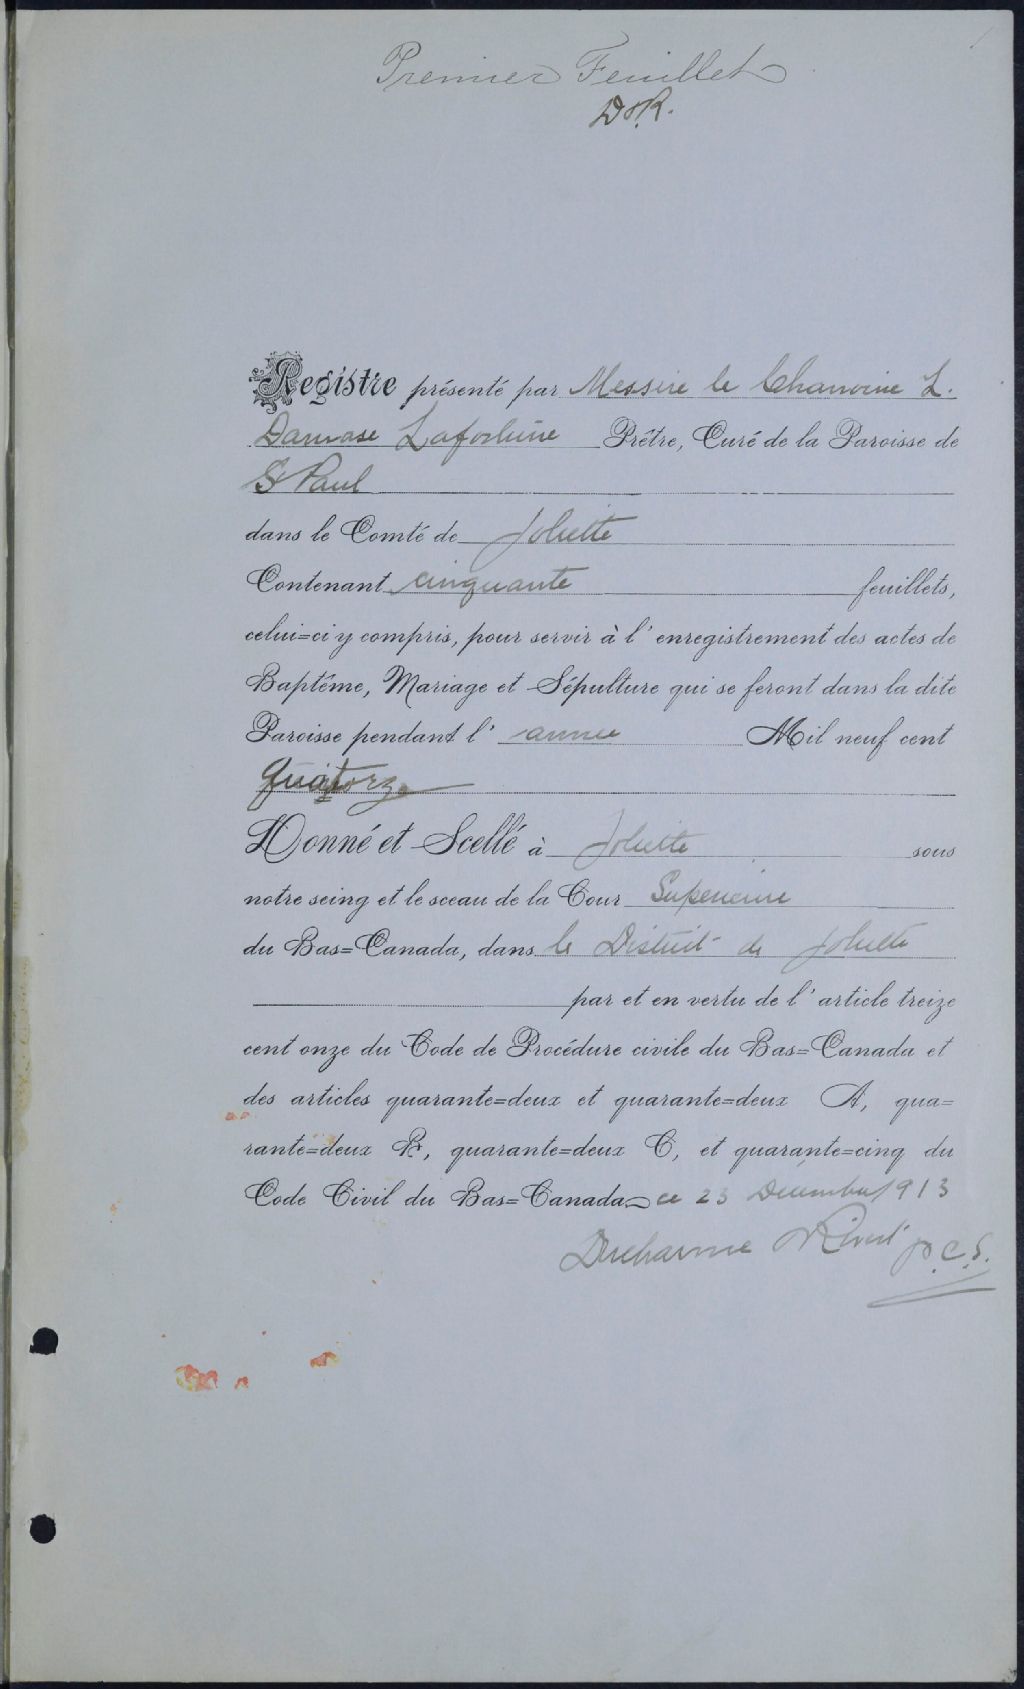 Premier Feuillet
D & R.
Registre présenté par Messire le Chanoine L.
Damase Lafortune Prêtre, Curé de la Paroisse de
St Paul
dans le Comté de Joliette
Contenant cinquante feuillets,
celui=ci y compris, pour servir à l'enregistrement des actes de
Baptême, Mariage et Sépulture qui se feront dans la dite
Paroisse pendant l'année Mil neuf cent
quatorze
Donné et Scellé à Joliette sous
notre seing et le sceau de la Cour Superieure
du Bas=Canada, dans le District de Joliette
par et en vertu de l'article treize
cent onze du Code de Procédure civile du Bas=Canada et
des articles quarante=deux et quarante=deux A, qua=
rante=deux B, quarante=deux C, et quarante=cinq du
Code Civil du Bas=Canada ce 23 Décembre 1913
Ducharme & Rivest P.C.S.